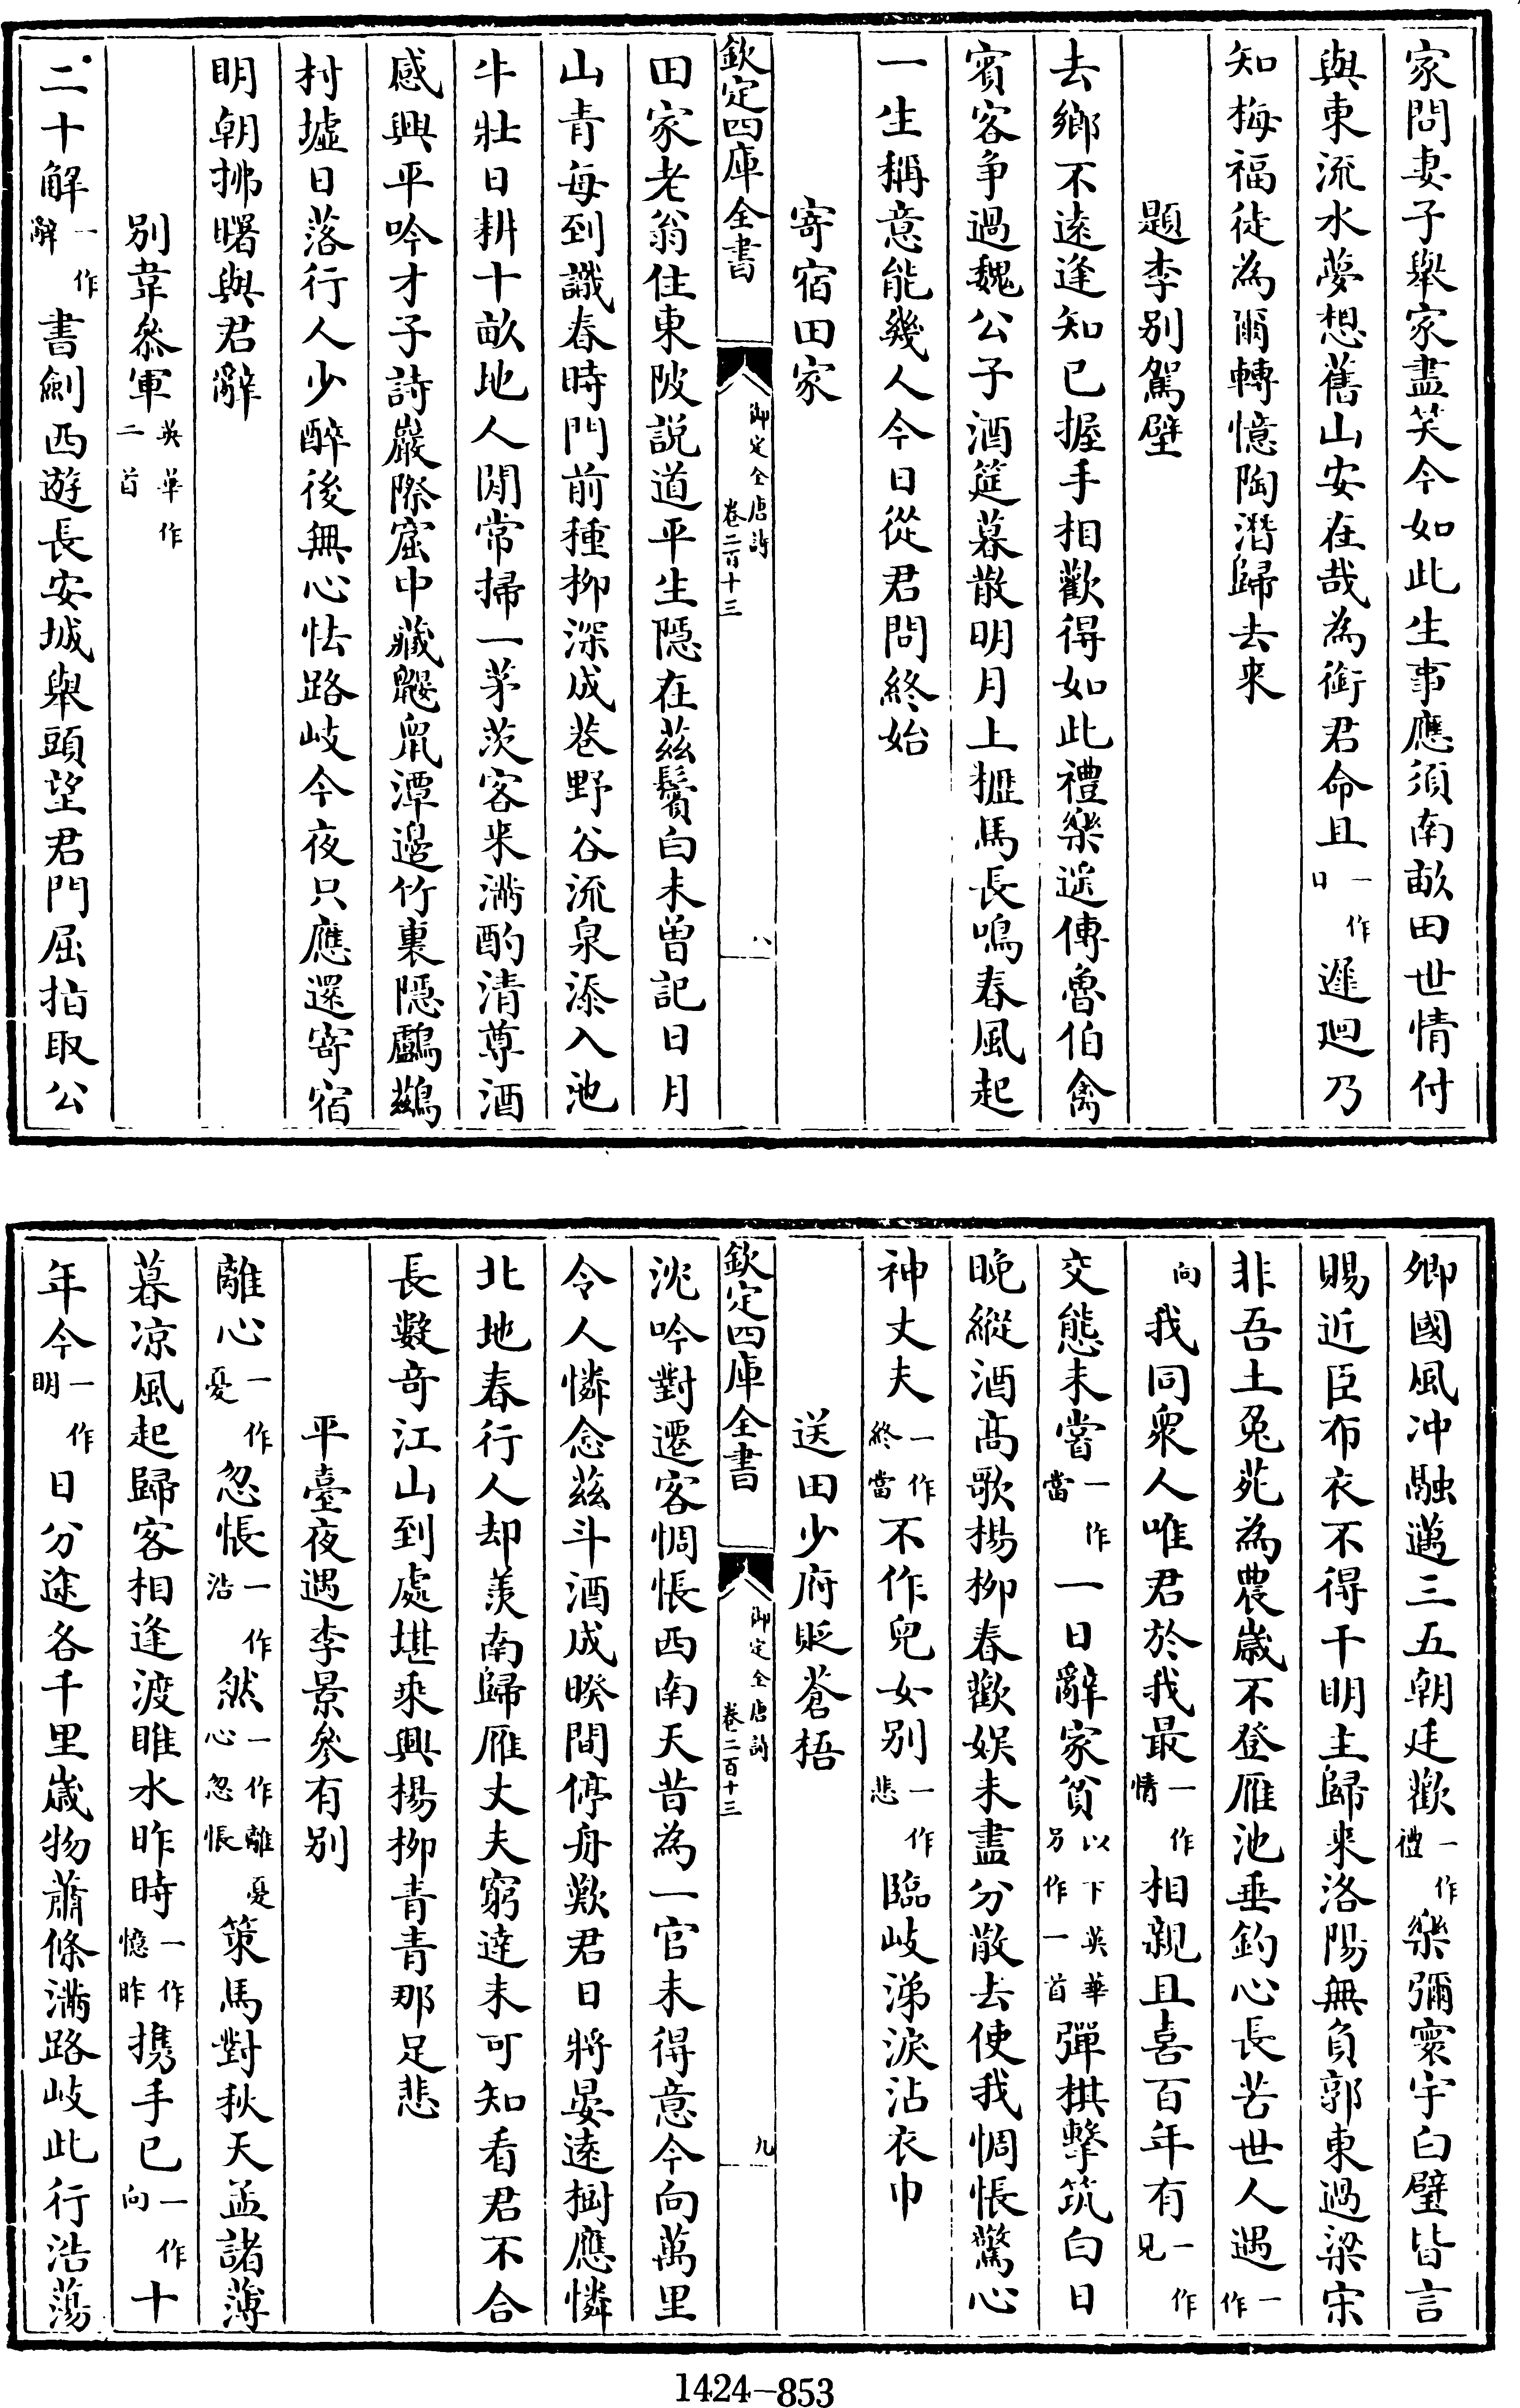 家問妻子舉家盡笑今如此生事應須南畝田世情付
與東流水夢想舊山安在哉為銜君命且一作日遲迴乃
知梅福徒為爾轉憶陶潛歸去来
題李别駕壁
去鄉不逺逢知已握手相歡得如此禮樂遥傳魯伯禽
賓客争過魏公子酒筵暮散明月上櫪馬長鳴春風起
一生稱意能幾人今日從君問終始
寄宿田家
欽定四庫全書
御定全唐詩
卷二百十三
八
田家老翁住東陂説道平生隱在茲鬢白未曾記日月
山青每到識春時門前種柳深成巷野谷流泉添入池
牛壯日耕十畝地人閒常掃一茅茨客来滿酌清尊酒
感興平吟才子詩巖際窟中藏鼴鼠潭邉竹裏隱鸕鷀
村墟日落行人少醉後無心怯路岐今夜只應還寄宿
明朝拂曙與君辭
别韋叅軍英華作二首
二十解一作辭書劍西遊長安城舉頭望君門屈指取公
卿國風冲融邁三五朝廷歡一作禮樂彌寰宇白璧皆言
賜近臣布衣不得干明主歸来洛陽無負郭東過梁宋
非吾土兎苑為農嵗不登雁池垂釣心長苦世人遇一作
向我同衆人唯君於我最一作情相親且喜百年有一作見
交態未嘗一作當一日辭家貧以下英華另作一首彈棋擊筑白日
晩縱酒髙歌楊柳春歡娱未盡分散去使我惆悵驚心
神丈夫一作終當不作兒女别一作悲臨岐涕淚沾衣巾
送田少府貶蒼梧
欽定四庫全書
御定全唐詩
卷二百十三
九
沈吟對遷客惆悵西南天昔為一官未得意今向萬里
令人憐念茲斗酒成暌間停舟歎君日將晏逺樹應憐
北地春行人却羡南歸雁丈夫窮達未可知看君不合
長數竒江山到處堪乘興楊柳青青那足悲
平臺夜遇李景參有别
離心一作憂忽悵一作浩然一作離憂心忽悵策馬對秋天孟諸薄
暮凉風起歸客相逢渡睢水昨時一作憶昨携手已一作向十
年今一作明日分途各千里嵗物蕭條滿路岐此行浩蕩
1424-853